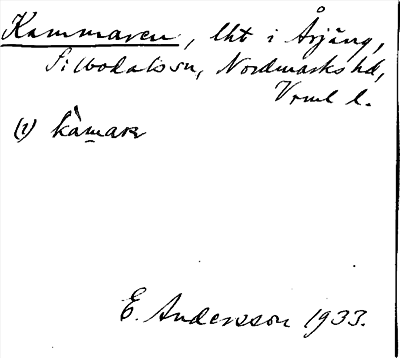 Kammaren, lht i Årjäng,
Silbodals sn, Nordmarks hd,
Vrml l.
(i) kàmaṛ
E. Andersson 1933.